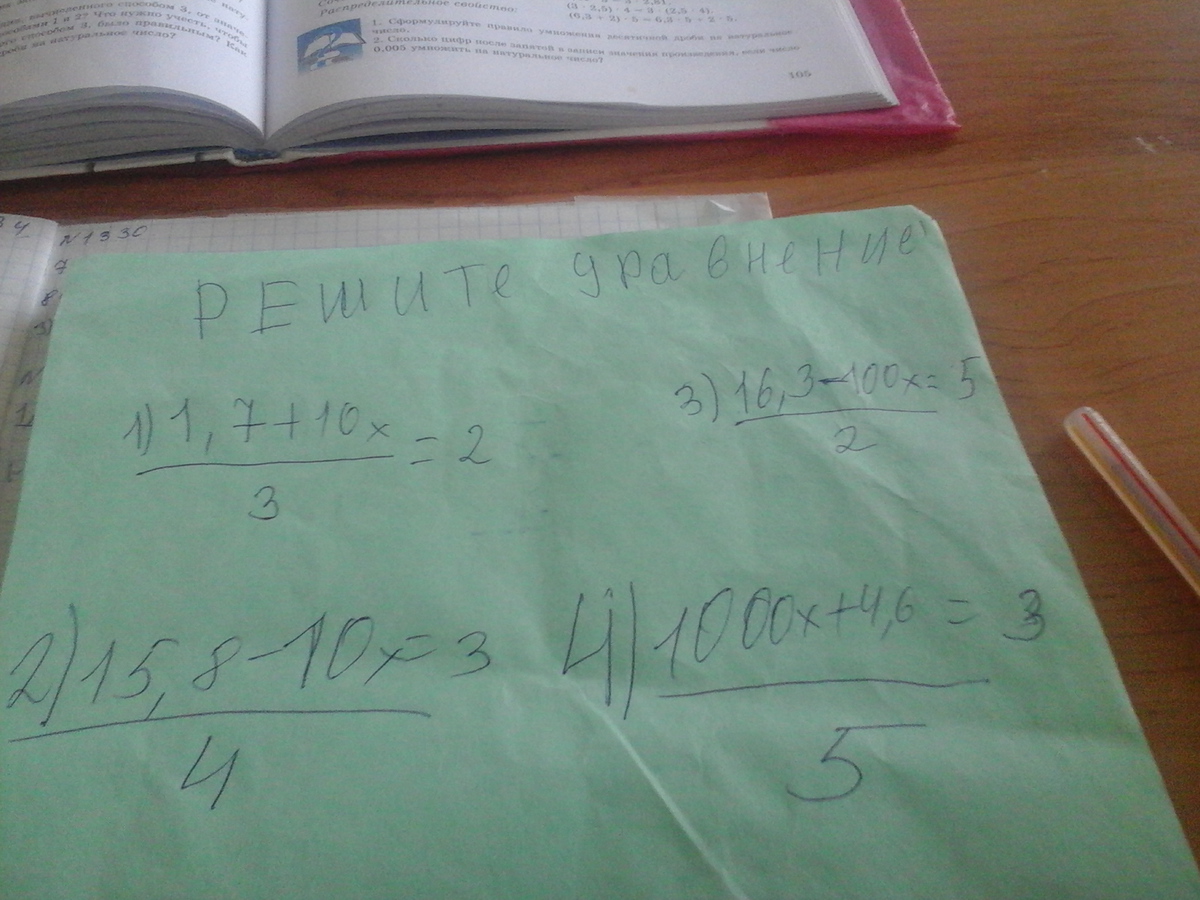 вычисленного способом 3, от значе-
способами 1 и 2? Что нужно учесть, чтобы
способом 3, было правильным? Как
на натуральное число?
Распределительное свойство:
(3 · 2,5) · 4 = 3 · (2,5 · 4).
(6,3 + 2) · 5 = 6,3 · 5 + 2 · 5.
1. Сформулируйте правило умножения десятичной дроби на натуральное
число.
2. Сколько цифр после запятой в записи значения произведения, если число
0,005 умножить на натуральное число?
105
N1330
РЕШИТе уравнение
1) 1,7+10x
= 2
3
3) 16,3-100x= 5
2
2) 15,8-10x= 3
4
4) 1000x+4,6 = 3
5